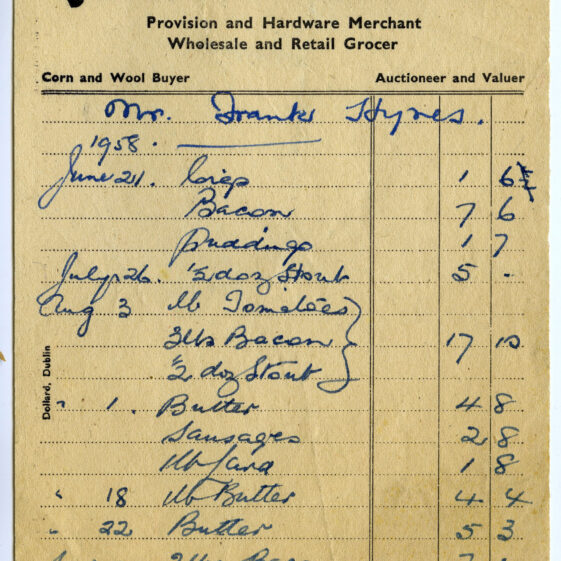 Provision and Hardware Merchant
Wholesale and Retail Grocer
Corn and Wool Buyer Auctioneer and Valuer
Mr. Frank Hynes.
1958.
June 21. 1 6½
Bacon 7 6
puddings 1 7
July 26. ½ doz Stout 5 -
Aug 3 lb Tomatoes
3lbs Bacon 17 10
½ doz Stout
" 1. Butter 4 8
Sausages 2 8
lb Lard 1 8
" 18 lb Butter 4 4
" 22 Butter 5 3
Dollard, Dublin